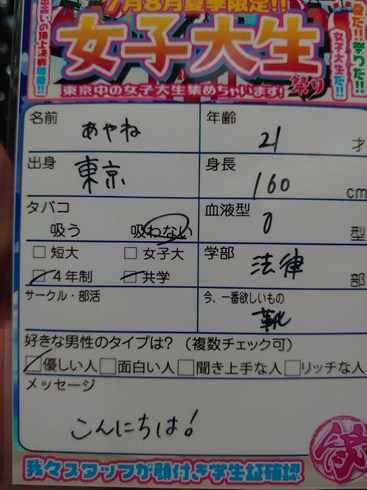 7月8月夏季限定!!
女子大生
祭り
東京中の女子大生集めちゃいます!
名前 あやね
年齢 21 才
出身 東京
身長 160 cm
タバコ
吸う 吸わない
血液型 O 型
□短大 □女子大
□4年制 □共学
学部 法律 部
サークル・部活
今、一番欲しいもの
靴
好きな男性のタイプは?(複数チェック可)
□優しい人 □面白い人 □聞き上手な人 □リッチな人
メッセージ
こんにちは!
我々スタッフが顔付き学生証確認